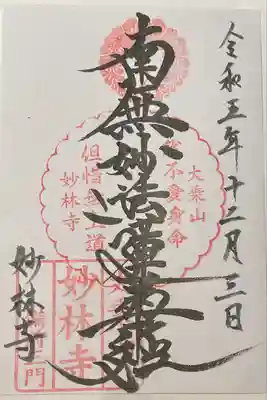 令和五年十二月三日
南無妙法蓮華経
大乗山
我不愛身命
但惜無上道
妙林寺
妙林寺
妙林寺